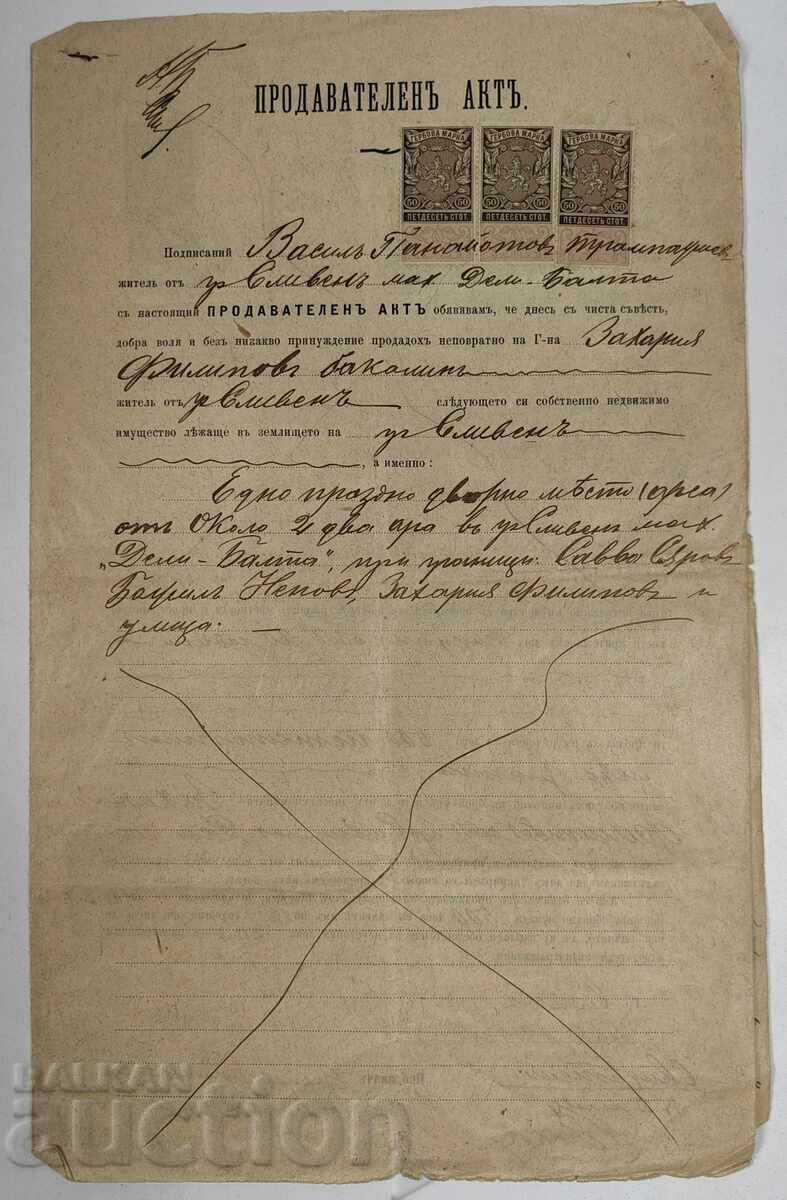 ПРОДАВАТЕЛЕНЪ АКТЪ.
ГЕРБОВА МАРКА ГЕРБОВА МАРКА ГЕРБОВА МАРКА
50 50 50 50 50 50
ПЕТДЕСЕТЬ СТОТ. ПЕТДЕСЕТЬ СТОТ. ПЕТДЕСЕТЬ СТОТ.
Подписаний Василъ Панайотовъ
житель отъ гр. Сливенъ мах. Дели-Балта
съ настоящий ПРОДАВАТЕЛЕНЪ АКТЪ обявивамъ, че днесь съ чиста съвѣсть,
добра воля и безъ никакво принуждение продадохъ неповратно на Г-на Захария
Филиповъ бакалинъ
житель отъ гр Сливенъ следующето си собственно недвижимо
имущество лѣжаще въ землището на гр Сливенъ
, а именно:
Едно праздно дворно мѣсто (арса)
отъ около 2 два ара въ гр Сливенъ мах.
„Дели-Балта", при граници: Савва
Ненов, Захария Филиповъ и
улица. —
БАЛКАН
auction